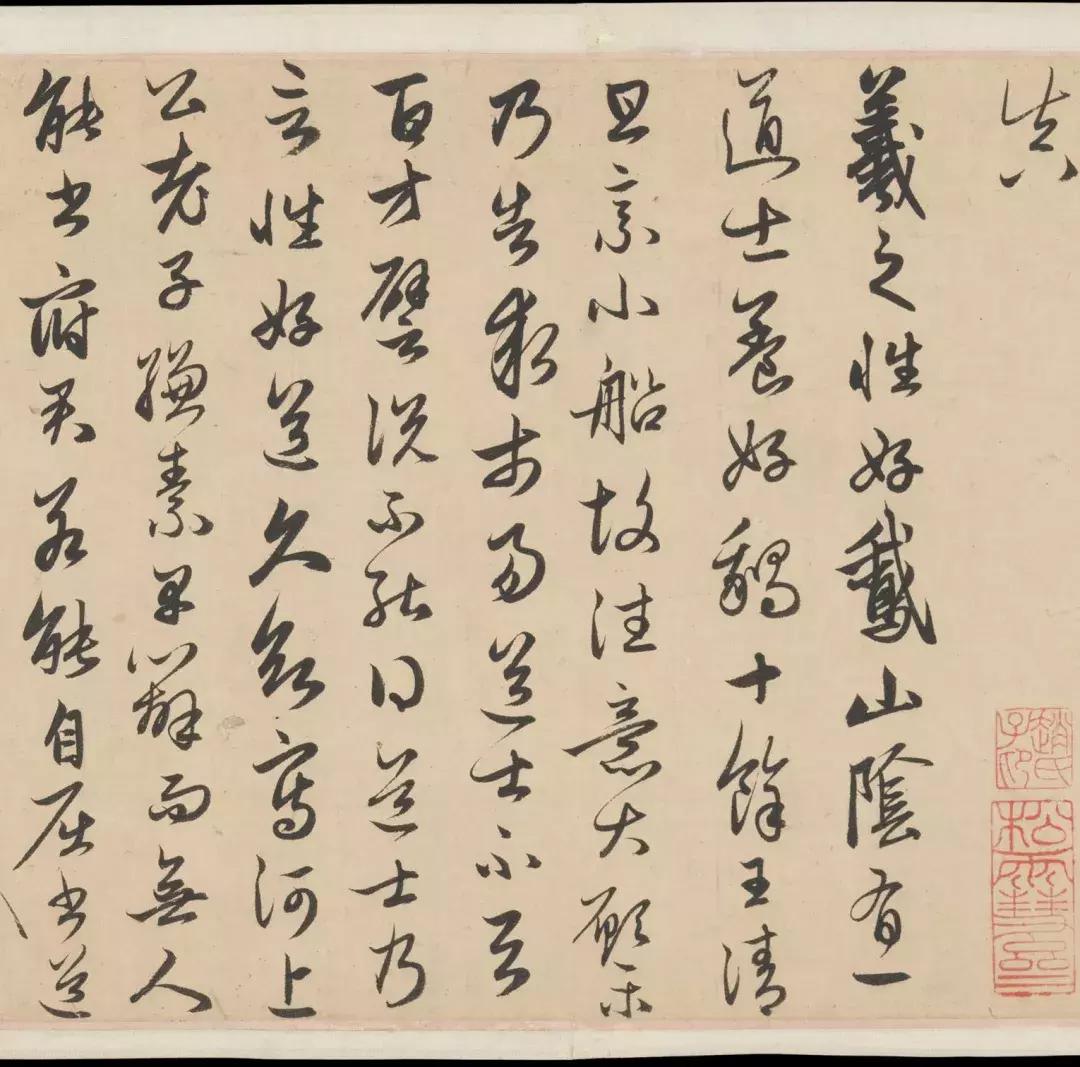 真
羲之性好鵞山陰有一
道士養好鵝十餘王清
旦乘小船故往意大願樂
乃告求市易道士不與
百方譬說不能得道士乃
言性好道久欲寫河上
公老子縑素早辦而無人
能書府君若能自屈書道
趙氏子昂
松雪齋